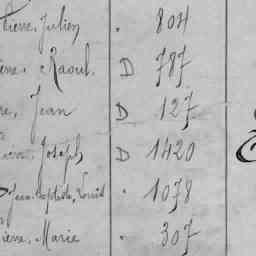 Pierre, Julien . 804
Raoul. D 787
Jean D 127
Joseph D 1420
Jean-Baptiste, Louis . 1078
Pierre, Marie . 307